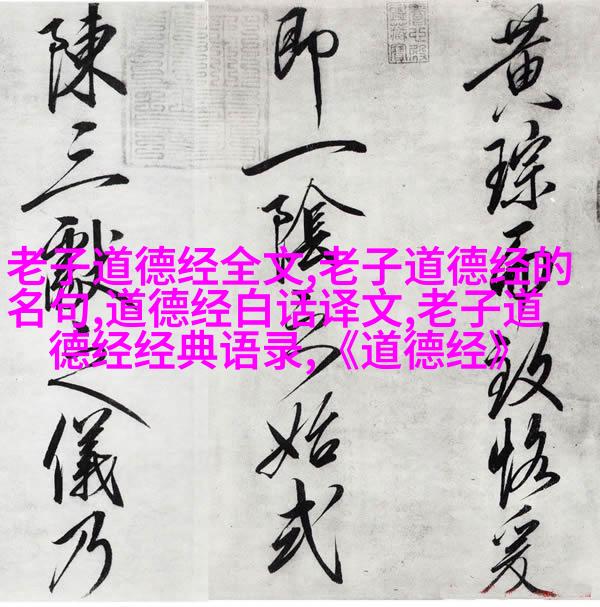 老子道德经全文,老子道德经的
名句,道德经白话译文,老子道
德经经典语录,《道德经》
黄琮致恪爰
即一陰之始式
陳三獻之儀乃